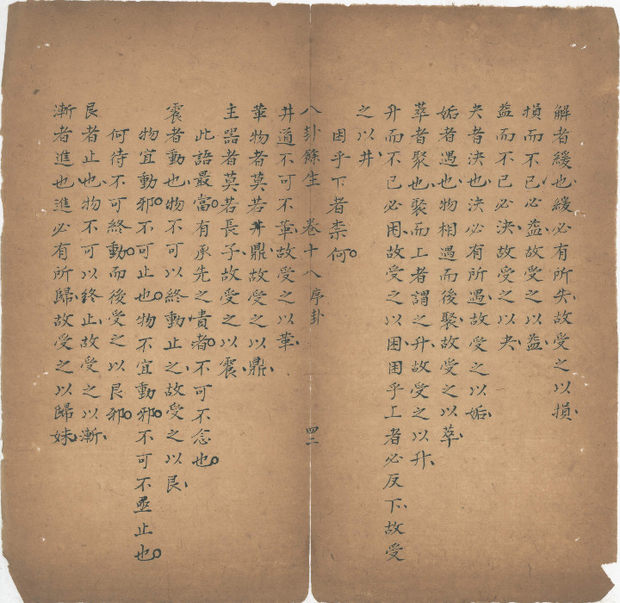 解者緩也、緩必有所失、故受之以損、
損而不已必益、故受之以益、
益而不已必決、故受之以夬、
夬者決也、決必有所遇、故受之以姤、
姤者遇也、物相遇而後聚、故受之以萃、
萃者聚也、聚而上者謂之升、故受之以升、
升而不已必困、故受之以困、困乎上者必反下、故受
之以井、
困乎下者柰何。
八卦餘生 卷十八序卦 四二
井道不可不革、故受之以革、
革物者莫若鼎、故受之以鼎、
主器者莫若長子、故受之以震、
此語最當。有承先之責者。不可不念也。
震者動也、物不可以終動、止之、故受之以艮、
物宜動邪。不可止也。物不宜動邪。不可不亟止也。
何待不可終動。而後受之以艮邪。
艮者止也、物不可以終止、故受之以漸、
漸者進也、進必有所歸、故受之以歸妹、